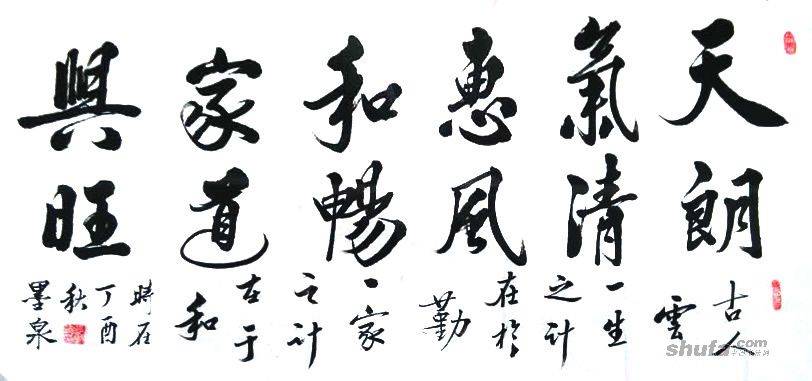 天朗
氣清
惠風
和暢
家道
興旺
古人
雲
一生
之计
在於
勤
一家
之计
在于
和
時在
丁酉
秋
墨泉
shufa.com